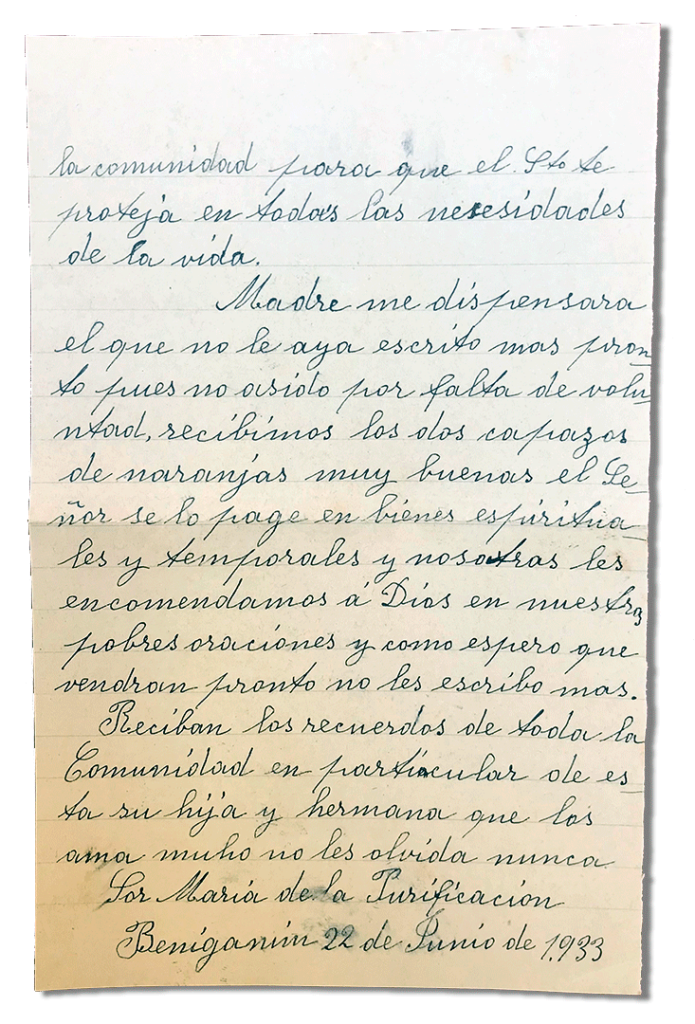 la comunidad para que el Sto te
proteja en todas las nesesidades
de la vida.
Madre me dispensara
el que no le aya escrito mas pron-
to pues no asido por falta de volu-
ntad, recibimos los dos capazos
de naranjas muy buenas el Se-
ñor se lo page en bienes espiritua-
les y temporales y nosotras les
encomendamos á Dios en nuestra
pobres oraciones y como espero que
vendran pronto no les escribo mas.
Reciban los recuerdos de toda la
Comunidad en particular de es-
ta su hija y hermana que los
ama muho no les olvida nunca
Sor Maria de la Purificacion
Beniganim 22 de Junio de 1.933